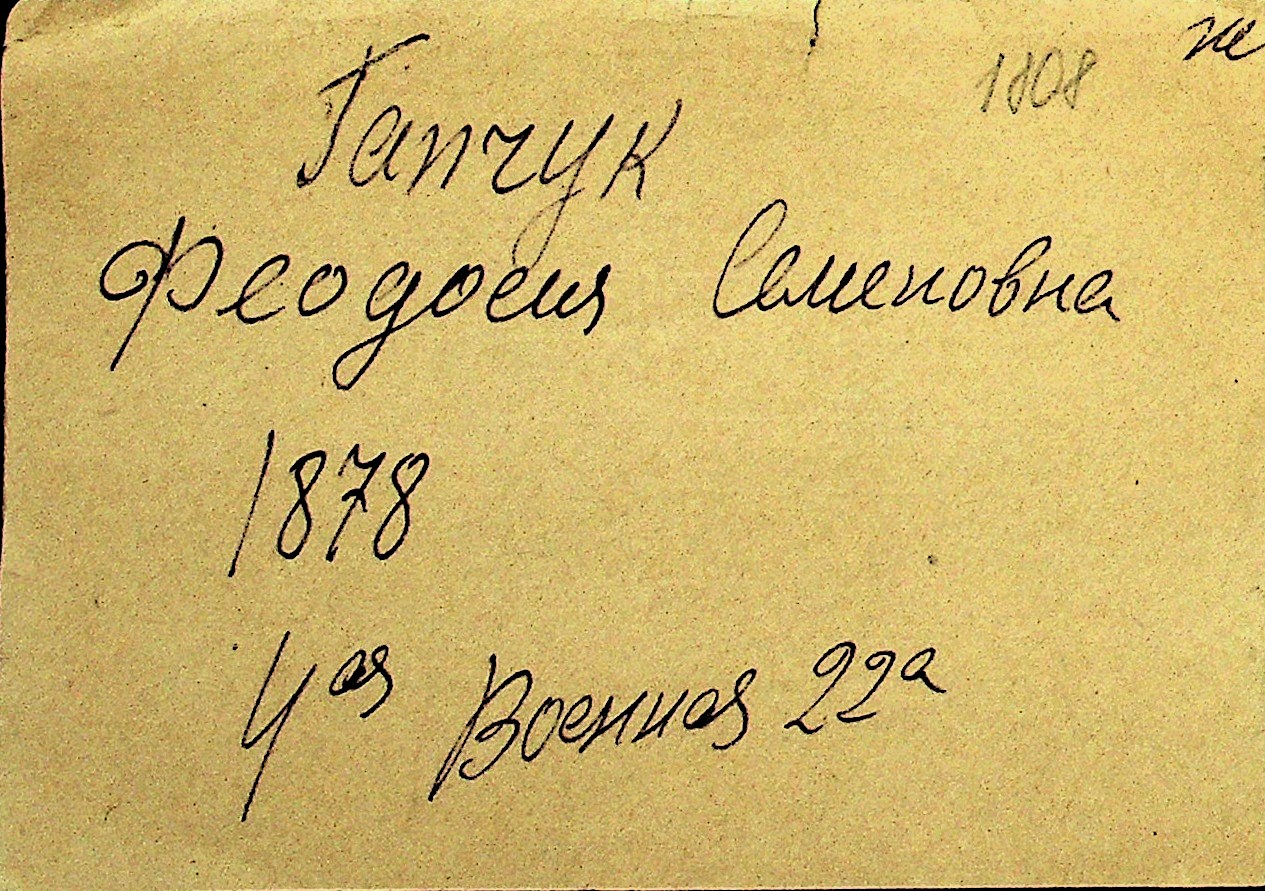 же
1808
Гапчук
Феодосия Семеновна
1878
4ая Военная 22а